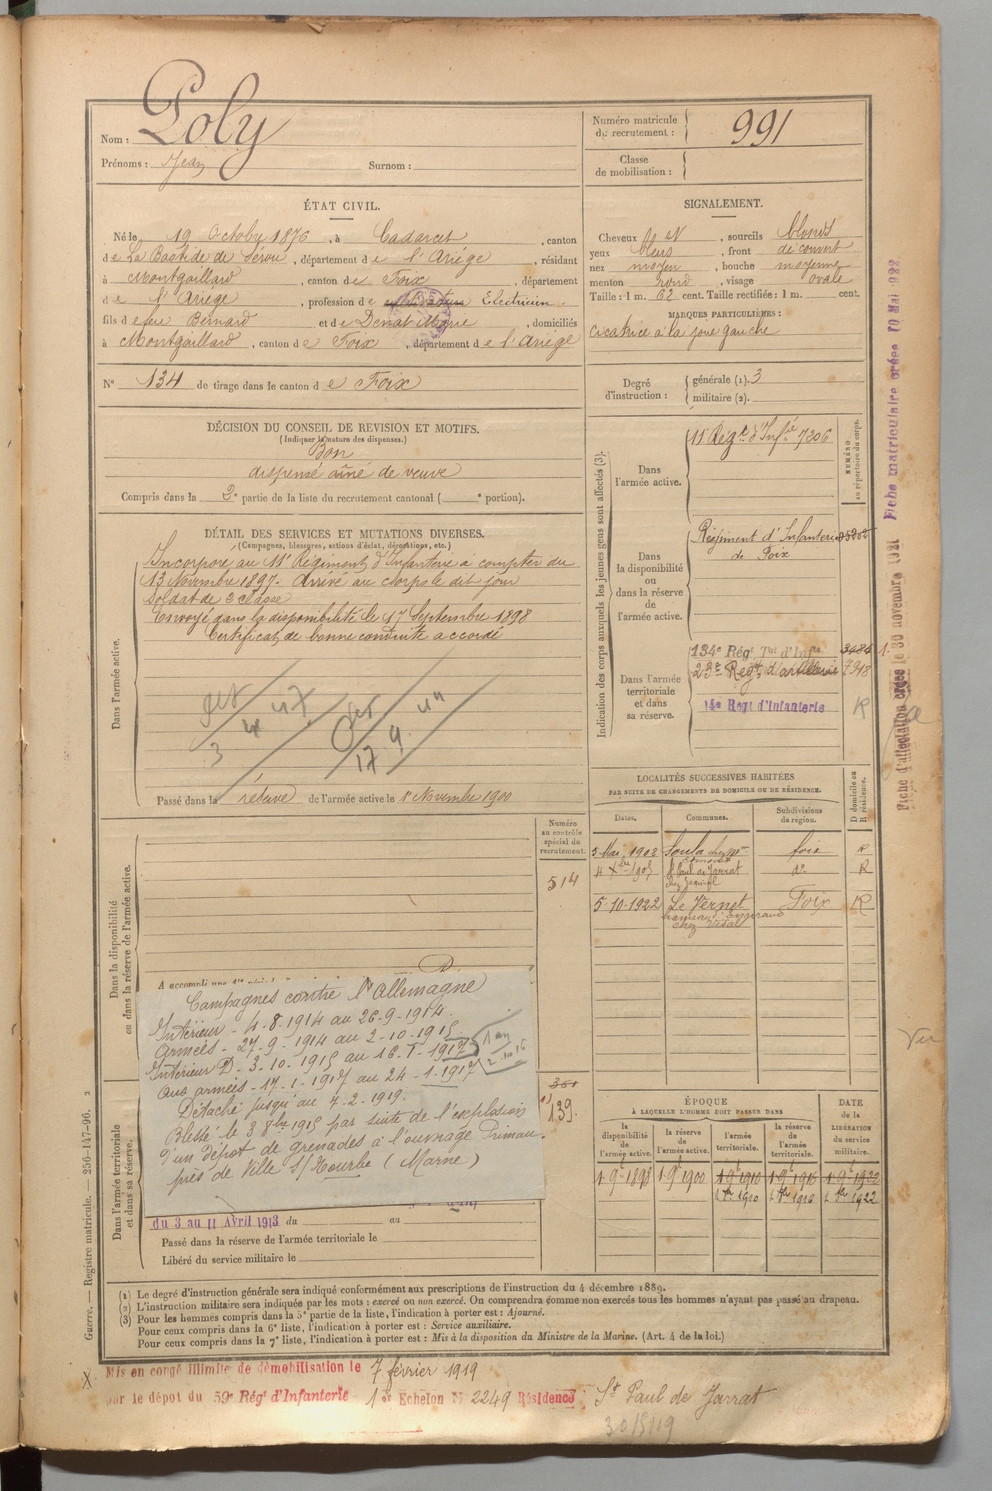 Nom : Poly
Prénoms : Jean Surnom :
Numéro matricule du recrutement : 991
Classe de mobilisation :
ÉTAT CIVIL.
Né le 19 Octobre 1876, à Cadarcet, canton
de La Bastide de Sérou, département de l'Ariège, résidant
à Montgaillard, canton de Foix, département
de l'Ariège, profession de cultivateur Electricien.
fils de feu Bernard et de Denat Marie, domiciliés
à Montgaillard, canton de Foix, département de l'Ariège
N° 134 de tirage dans le canton de Foix
SIGNALEMENT.
Cheveux et sourcils blonds
yeux bleus, front découvert
nez moyen, bouche moyenne
menton rond, visage ovale
Taille : 1 m. 62 cent. Taille rectifiée : 1 m. cent.
MARQUES PARTICULIÈRES :
cicatrice à la joue gauche
Degré d'instruction : générale (1). 3
militaire (2).
DÉCISION DU CONSEIL DE REVISION ET MOTIFS.
(Indiquer la nature des dispenses.)
Bon
dispensé aîné de veuve
Compris dans la 2e partie de la liste du recrutement cantonal ( e portion).
DÉTAIL DES SERVICES ET MUTATIONS DIVERSES.
(Campagnes, blessures, actions d'éclat, décorations, etc.)
Dans l'armée active.
Incorporé au 11e Régiment d'Infanterie à compter du
13 Novembre 1897. Arrivé au Corps le dit jour
Soldat de 2e classe
Envoyé dans la disponibilité le 17 Septembre 1898
Certificat de bonne conduite accordé
Passé dans la réserve de l'armée active le 1r Novembre 1900
Indication des corps auxquels les jeunes gens sont affectés (3).
NUMÉRO au répertoire du corps.
Dans l'armée active.
11e Régt d'Infie 7206
Dans la disponibilité ou dans la réserve de l'armée active.
Régiment d'Infanterie
de Foix
Dans l'armée territoriale et dans sa réserve.
134e Régt Tal d'Infie
23e Régt d'artillerie 7348
14e Régt d'Infanterie R
LOCALITÉS SUCCESSIVES HABITÉES
PAR SUITE DE CHANGEMENTS DE DOMICILE OU DE RÉSIDENCE.
Dates. Communes. Subdivisions de région. D domicile ou R résidence.
5 Mai 1902 Soula Foix R
St Paul de Jarrat do R
5-10-1922 Le Vernet Foix R
chez Vidal
Numéro au contrôle spécial du recrutement.
514
Dans la disponibilité ou dans la réserve de l'armée active.
Campagnes contre l'Allemagne
Intérieur - 4-8-1914 au 26-9-1914.
Armées - 27-9-1914 au 2-10-1915
Intérieur D - 3-10-1915 au 16-1-1917
aux armées - 17-1-1917 au 24-1-1917
Détaché jusqu'au 7-2-1919.
Blessé le 3 8bre 1915 par suite de l'explosion
d'un dépôt de grenades à l'ouvrage Primau
près de Ville s/Tourbe (Marne)
139.
Dans l'armée territoriale et dans sa réserve.
du 3 au 11 Avril 1913 du au
Passé dans la réserve de l'armée territoriale le
Libéré du service militaire le
ÉPOQUE
À LAQUELLE L'HOMME DOIT PASSER DANS
la disponibilité de l'armée active. la réserve de l'armée active. l'armée territoriale. la réserve de l'armée territoriale. DATE de la LIBÉRATION du service militaire.
1-9-1898 1-9-1900 1-9-1910 1-9-1916 1-9-1922
1910 1916 1922
(1) Le degré d'instruction générale sera indiqué conformément aux prescriptions de l'instruction du 4 décembre 1889.
(2) L'instruction militaire sera indiquée par les mots : exercé ou non exercé. On comprendra comme non exercés tous les hommes n'ayant pas passé au drapeau.
(3) Pour les hommes compris dans la 5e partie de la liste, l'indication à porter est : Ajourné.
Pour ceux compris dans la 6e liste, l'indication à porter est : Service auxiliaire.
Pour ceux compris dans la 7e liste, l'indication à porter est : Mis à la disposition du Ministre de la Marine. (Art. 4 de la loi.)
Mis en congé illimité de démobilisation le 7 février 1919
par le dépôt du 59e Régt d'Infanterie 1er Echelon N° 2249 Résidence St Paul de Jarrat
Guerre. — Registre matricule. — 256-147-96. 2
Fiche d'affectation créée le 30 novembre 1921
Fiche matriculaire créée 10 Mai 1922
Vu